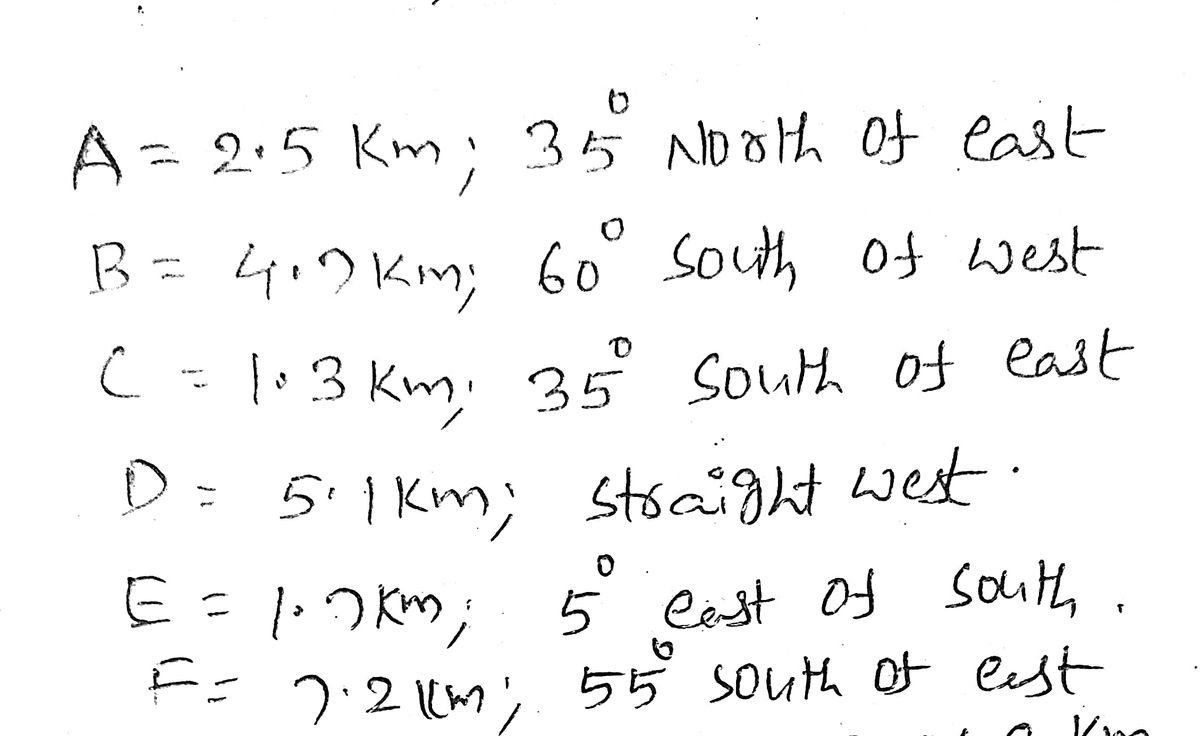 A = 2.5 Km; 35° North of east
B = 4.7 Km; 60° South of west
C = 1.3 Km; 35° South of east
D = 5.1 Km; straight west.
E = 1.7 Km; 5° east of south.
F = 7.2 Km; 55° south of east
Km